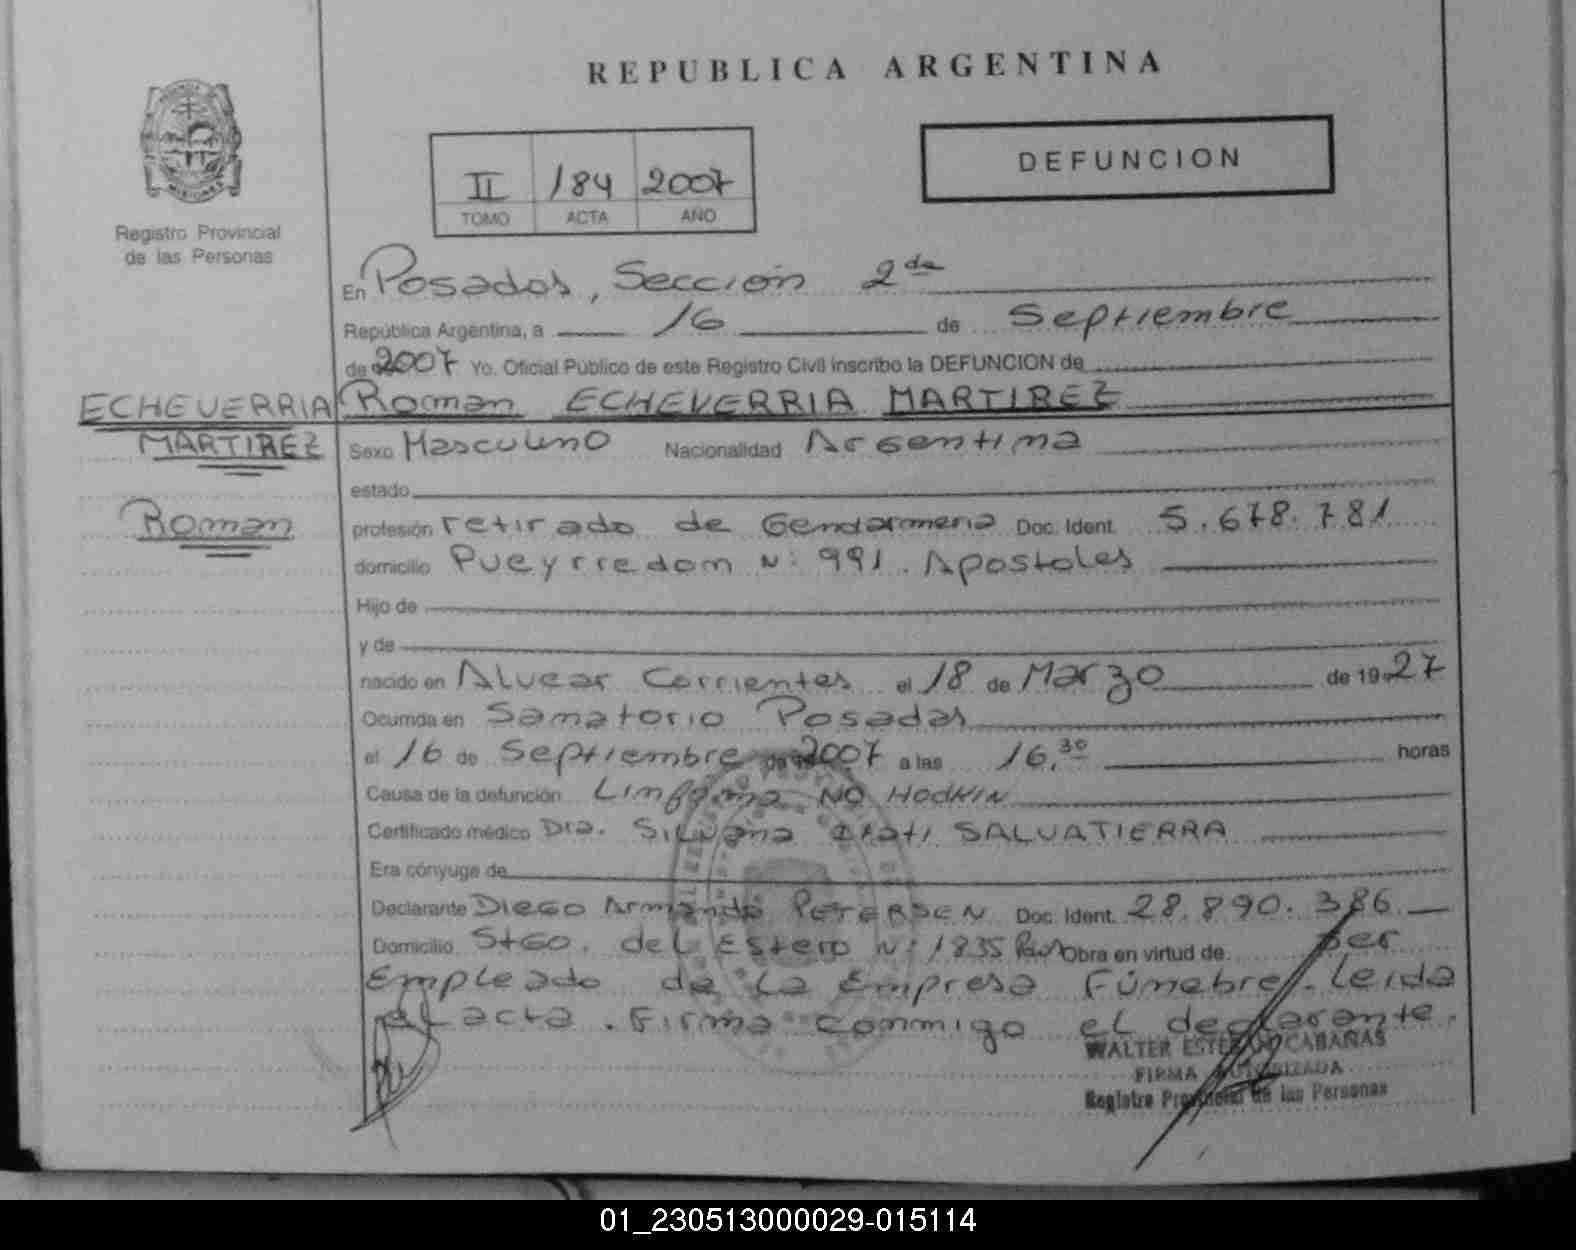 REPUBLICA ARGENTINA
DEFUNCION
II 184 2007
TOMO ACTA AÑO
MISIONES
Registro Provincial
de las Personas
En Posadas, Sección 2da
República Argentina, a 16 de Septiembre
de 2007 Yo. Oficial Público de este Registro Civil inscribo la DEFUNCION de
ECHEVERRIA
MARTIREZ
Roman
Roman ECHEVERRIA MARTIREZ
Sexo Masculino Nacionalidad Argentina
estado
profesión retirado de Gendarmeria Doc. Ident. 5.678.781
domicilio Pueyrredon N: 991. Apostoles
Hijo de
y de
nacido en Alvear Corrientes el 18 de Marzo de 1927
Ocurrida en Sanatorio Posadas
el 16 de Septiembre de 2007 a las 16.30 horas
Causa de la defunción Linfoma NO HODKIN
Certificado médico Dra. Silvana SALVATIERRA
Era cónyuge de
Declarante Diego Armando PETERSEN Doc. Ident. 28.890.386.
Domicilio Stgo. del Estero N: 1835 Obra en virtud de ser
Empleado de la Empresa Fúnebre. Leida
el acta. Firma conmigo el declarante.
WALTER CABAÑAS
FIRMA AUTORIZADA
Registro Provincial de las Personas
01_230513000029-015114